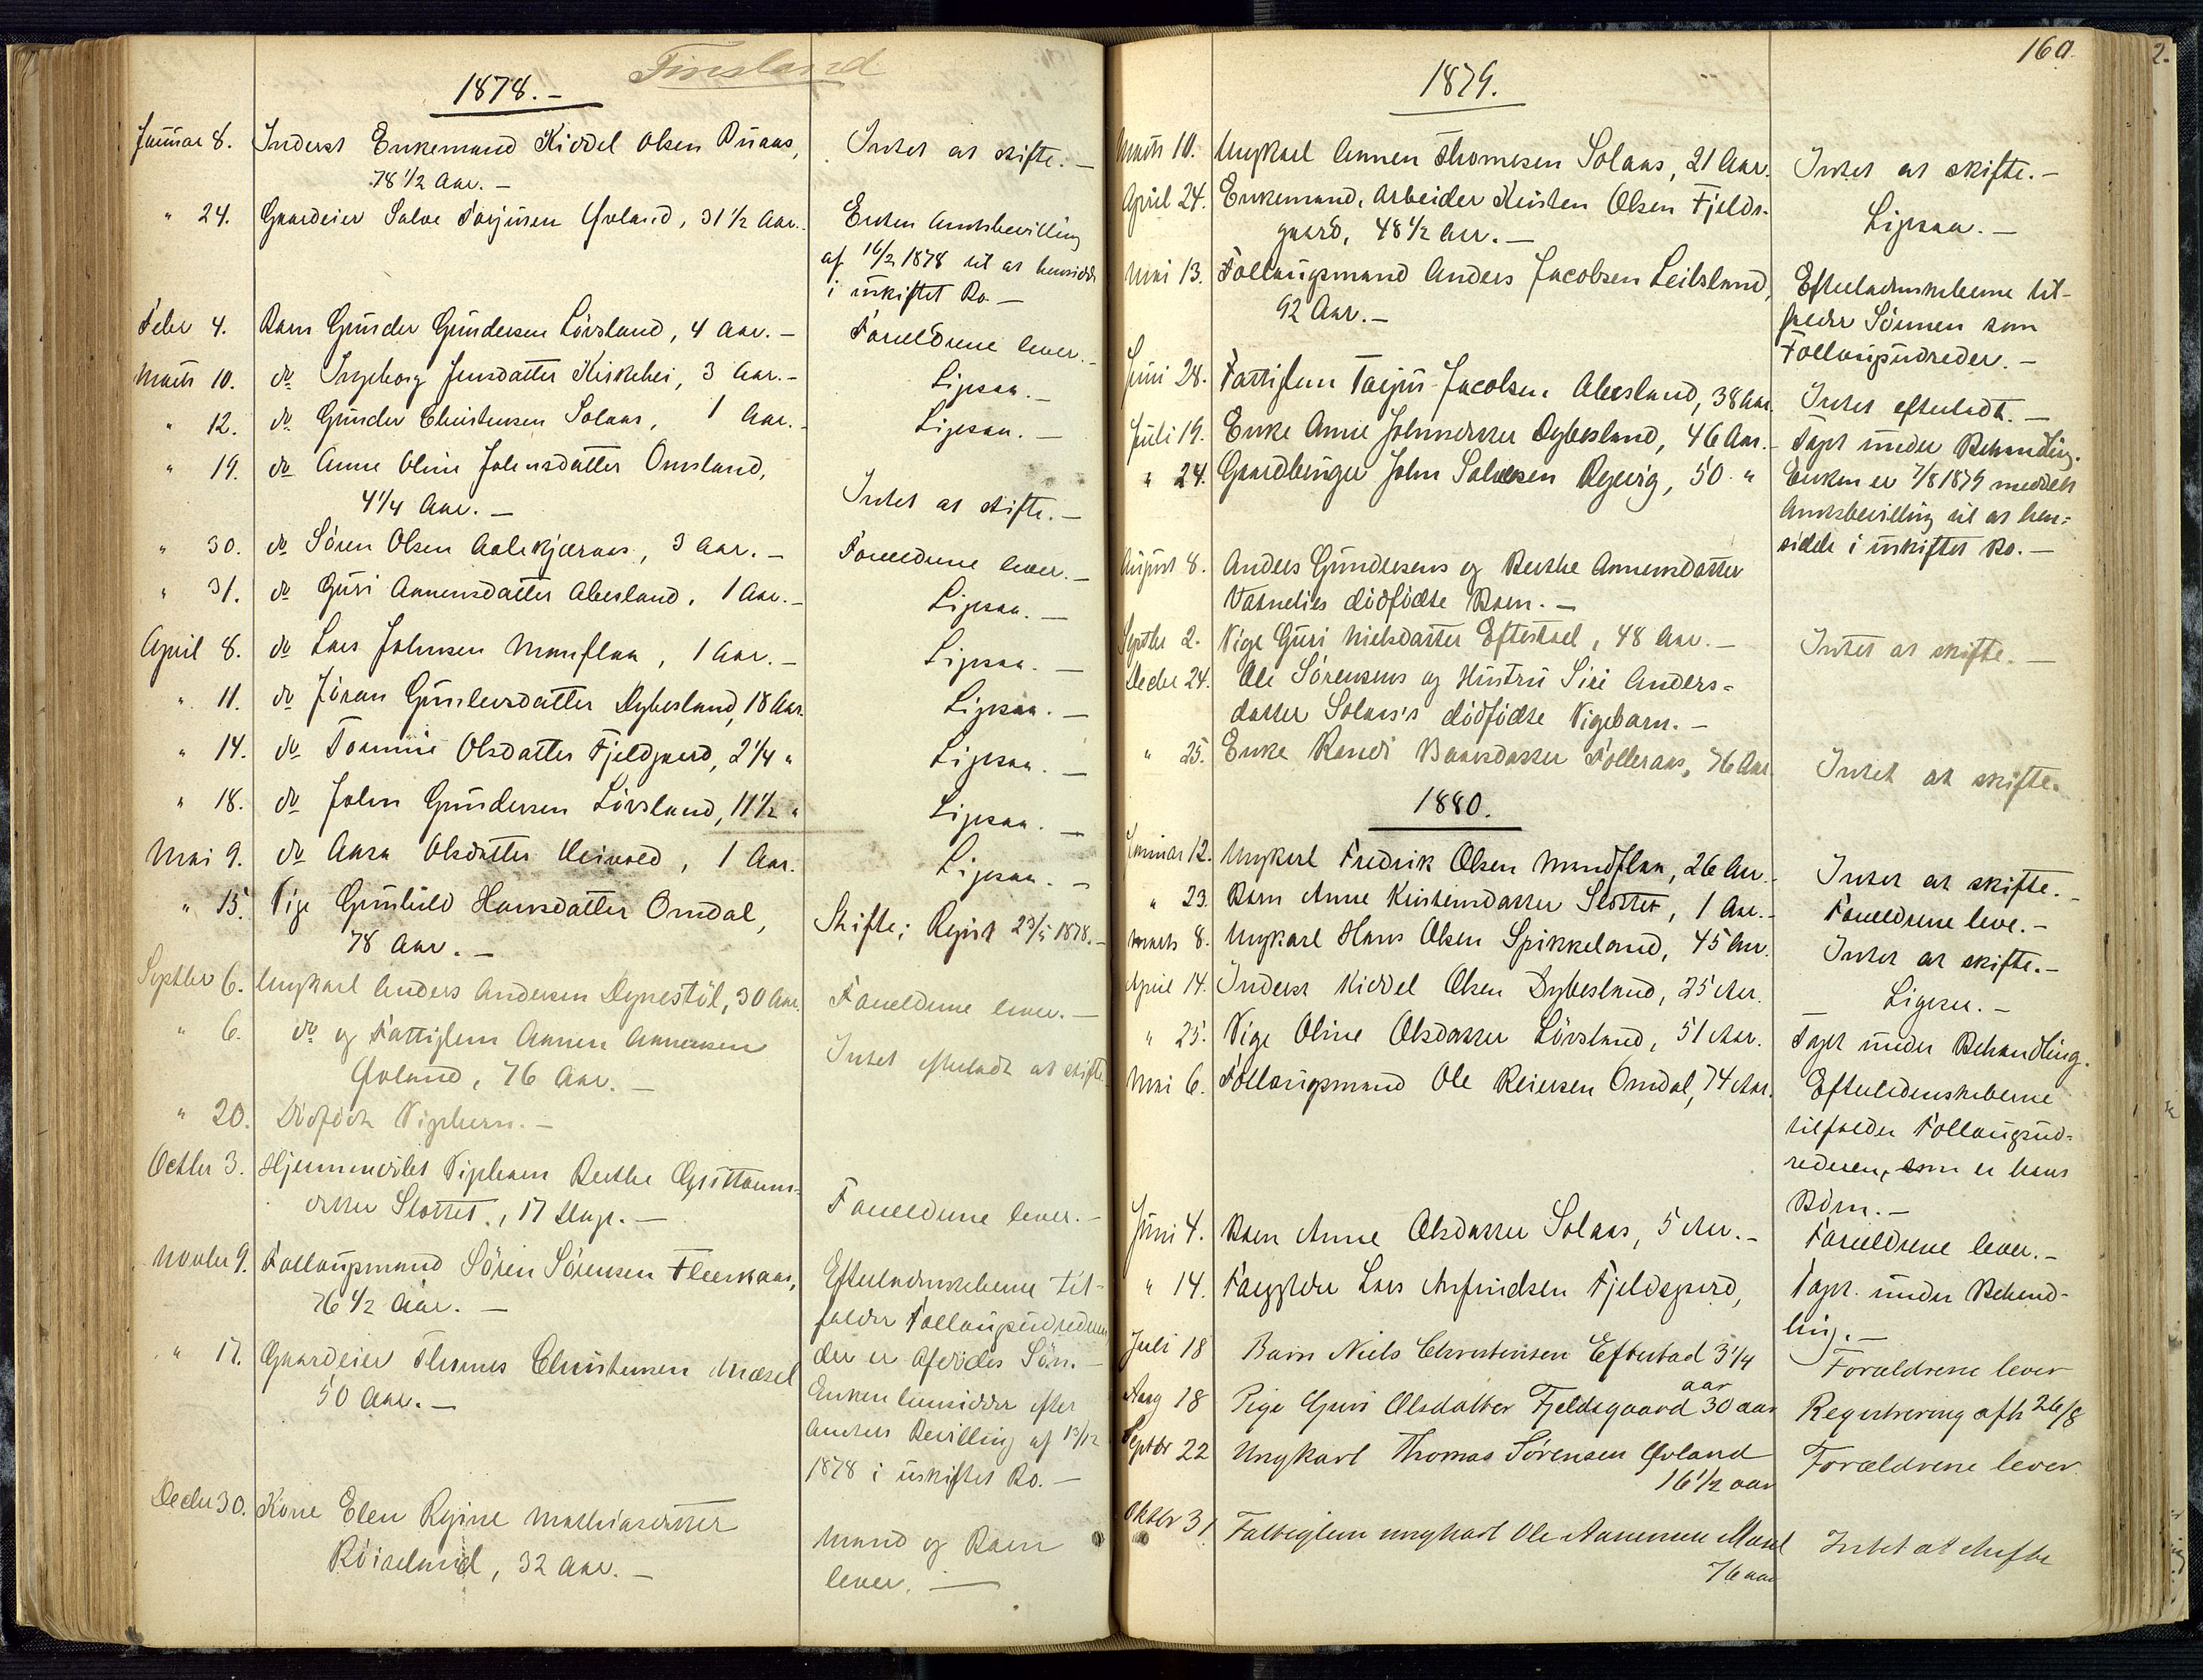 Finsland
1878.-
Januar 8. Inderst Enkemand Kiddel Olsen Duaas, Intet at skifte.-
78 1/2 Aar.-
" 24. Gaardeier Salve Torjusen Øvland, 31 1/2 Aar. Enken Amtsbevilling
af 16/2 1878 til at hensidde
i uskiftet Bo-
Febr 4. Barn Gunder Gundersen Lövsland, 4 Aar.- Forældrene lever.-
Marts 10. do Ingeborg Jensdatter Kirkehei, 3 Aar.- Ligesaa.-
" 12. do Gunder Christensen Solaas, 1 Aar.- Ligesaa.-
" 19. do Anne Oline Johnsdatter Omsland,
4 1/4 Aar.- Intet at skifte.-
" 30. do Sören Olsen Aalekjæraas, 3 Aar.- Forældrene lever.-
" 31. do Guri Aanensdatter Abesland, 1 Aar.- Ligesaa.-
April 8. do Lars Johnsen Manflaa, 1 Aar.- Ligesaa.-
" 11. do Jöran Gunlevsdatter Dybesland, 18 Aar. Ligesaa.-
" 14. do Tomine Olsdatter Fjeldgaard, 2 1/4 " Ligesaa.-
" 18. do John Gundersen Lövsland, 11 1/2 " Ligesaa.-
Mai 9. do Aasa Olsdatter Heivold, 1 Aar. Ligesaa.-
" 15. Pige Gunhild Hansdatter Omdal, Skifte; Regist 23/5 1878.-
78 Aar.-
Septbr 6. Ungkarl Anders Andersen Dynestöl, 30 Aar. Forældrene lever.-
" 6. do og Fattiglem Aanen Aanensen Intet efterladt at skifte
Øvland, 76 Aar.-
" 20. Dödfödt Pigebarn.-
Octbr 3. Hjemmedöbt Pigebarn Berthe Guttorms-
datter Slottet, 17 Dage.- Forældrene lever.-
Novbr 9. Follaugsmand Sören Sörensen Fleeskaas, Efterladenskaberne til-
76 1/2 Aar.- falder Follaugsudrederen,
der er Afdödes Sön.-
" 17. Gaardeier Thomas Christensen Mæsel Enken hensidder efter
50 Aar.- Amtets Bevilling af 13/12
1878 i uskiftet Bo.-
Decbr 30. Kone Elen Regine Mathiasdatter Mand og Barn
Röiseland, 32 Aar.- lever.-
160.
1879.
Marts 10. Ungkarl Aanen Thomesen Solaas, 21 Aar. Intet at skifte.-
April 24. Enkemand, Arbeider Kristen Olsen Fjelds-
gaard, 48 1/2 Aar.- Ligesaa.-
Mai 13. Follaugsmand Anders Jacobsen Leilsland, Efterladenskaberne til-
92 Aar.- falder Sönnen som
Follaugsudreder.-
Juni 28. Fattiglem Tarjus Jacobsen Abesland, 38 Aar. Intet efterladt.-
Juli 19. Enke Anne Johnsdatter Dybesland, 46 Aar.- Taget under Behandling.
" 24. Gaardbruger John Salvesen Rygvig, 50 " Enken er 7/8 1879 meddelt
Amtsbevilling til at hen-
sidde i uskiftet Bo.-
August 8. Anders Gundersens og Berthe Aanensdatter
Vatnelies dödfödte Barn.-
Septbr 2. Pige Guri Nielsdatter Eftestad, 48 Aar.- Intet at skifte.-
Decbr 24. Ole Sörensens og Hustru Siri Anders-
datter Solaas's dödfödte Pigebarn.-
" 25. Enke Randi Baardsdatter Folleraas, 76 Aar Intet at skifte.
1880.
Januar 12. Ungkarl Fredrik Olsen Mandflaa, 26 Aar. Intet at skifte.-
" 23. Barn Anne Kristensdatter Slottet, 1 Aar.- Forældrene leve.-
Marts 8. Ungkarl Hans Olsen Spikkeland, 45 Aar. Intet at skifte.-
April 14. Inderst Kiddel Olsen Dybesland, 25 Aar. Ligesaa.-
" 25. Pige Oline Olsdatter Lövsland, 51 Aar. Taget under Behandling.
Mai 6. Follaugsmand Ole Reiersen Omdal, 74 Aar. Efterladenskaberne
tilfalder Follaugsud-
rederen, som er hans
Barn.-
Juni 4. Barn Anne Olsdatter Solaas, 5 Aar.- Forældrene lever.-
" 14. Lars Arfindsen Fjeldsgaard, Taget under Behand-
ling.-
Juli 18 Barn Niels Christensen Eftestad 3 1/4 Forældrene lever
aar
Aug 18 Pige Guri Olsdatter Fjeldsgaard 30 aar Registrering afh 26/8
Septbr 22 Ungkarl Thomas Sörensen Øvland Forældrene lever.
16 1/2 aar
Oktbr 31 Fattiglem ungkarl Ole Aanensen Mæsel Intet at skifte
76 aar